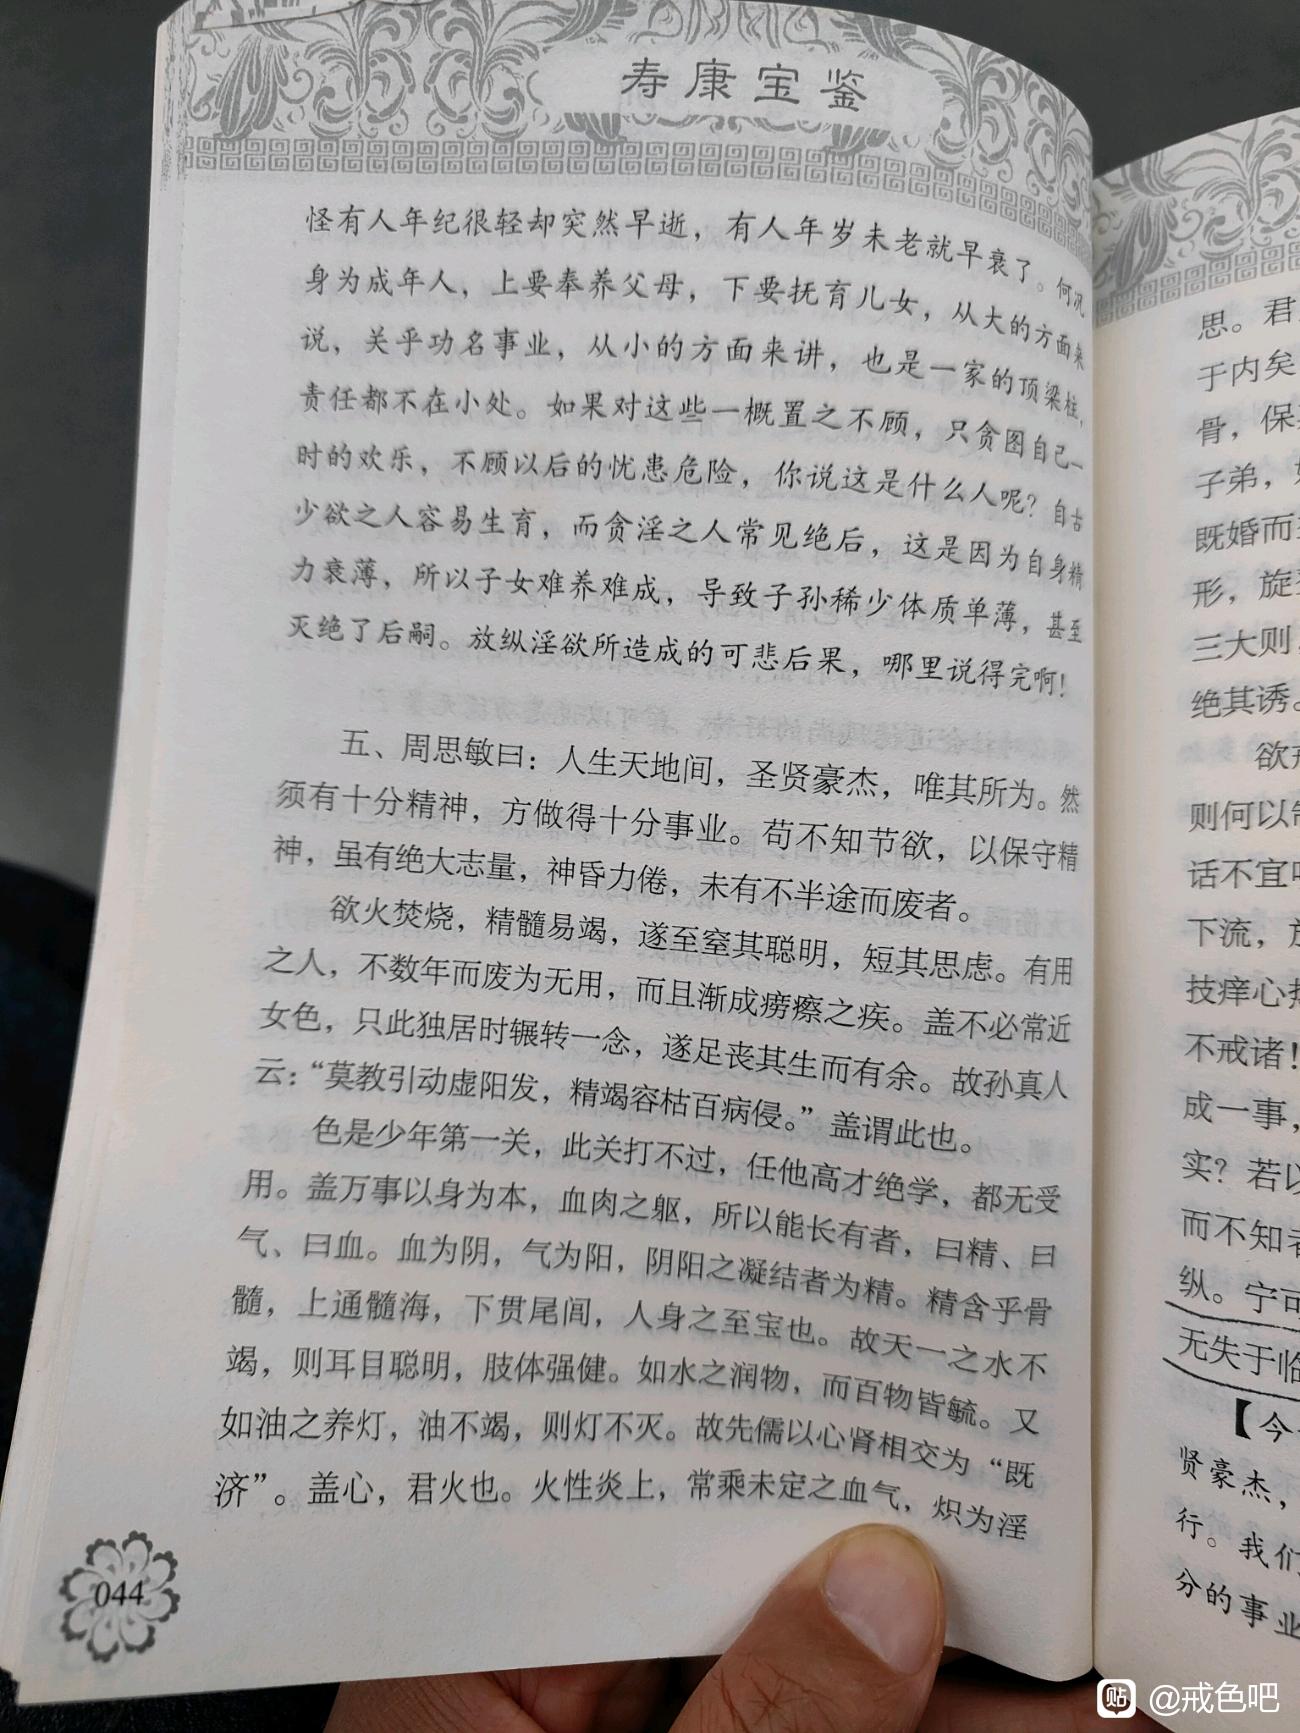 寿康宝鉴
怪有人年纪很轻却突然早逝，有人年岁未老就早衰了。何况
身为成年人，上要奉养父母，下要抚育儿女，从大的方面来
说，关乎功名事业，从小的方面来讲，也是一家的顶梁柱，
责任都不在小处。如果对这些一概置之不顾，只贪图自己一
时的欢乐，不顾以后的忧患危险，你说这是什么人呢？自古
少欲之人容易生育，而贪淫之人常见绝后，这是因为自身精
力衰薄，所以子女难养难成，导致子孙稀少体质单薄，甚至
灭绝了后嗣。放纵淫欲所造成的可悲后果，哪里说得完啊！
五、周思敏曰：人生天地间，圣贤豪杰，唯其所为。然
须有十分精神，方做得十分事业。苟不知节欲，以保守精
神，虽有绝大志量，神昏力倦，未有不半途而废者。
欲火焚烧，精髓易竭，遂至窒其聪明，短其思虑。有用
之人，不数年而废为无用，而且渐成痨瘵之疾。盖不必常近
女色，只此独居时辗转一念，遂足丧其生而有余。故孙真人
云：“莫教引动虚阳发，精竭容枯百病侵。”盖谓此也。
色是少年第一关，此关打不过，任他高才绝学，都无受
用。盖万事以身为本，血肉之躯，所以能长有者，曰精、曰
气、曰血。血为阴，气为阳，阴阳之凝结者为精。精含乎骨
髓，上通髓海，下贯尾闾，人身之至宝也。故天一之水不
竭，则耳目聪明，肢体强健。如水之润物，而百物皆毓。又
如油之养灯，油不竭，则灯不灭。故先儒以心肾相交为“既
济”。盖心，君火也。火性炎上，常乘未定之血气，炽为淫
044
思。君
于内矣
骨，保
子弟，
既婚而
形，旋
三大则，
绝其诱。
欲
则何以
话不宜
下流，
技痒心
不戒诸！
成一事，
实？若以
而不知者
纵。宁可
无失于临
【今
贤豪杰，
行。我们
分的事业
贴 @戒色吧